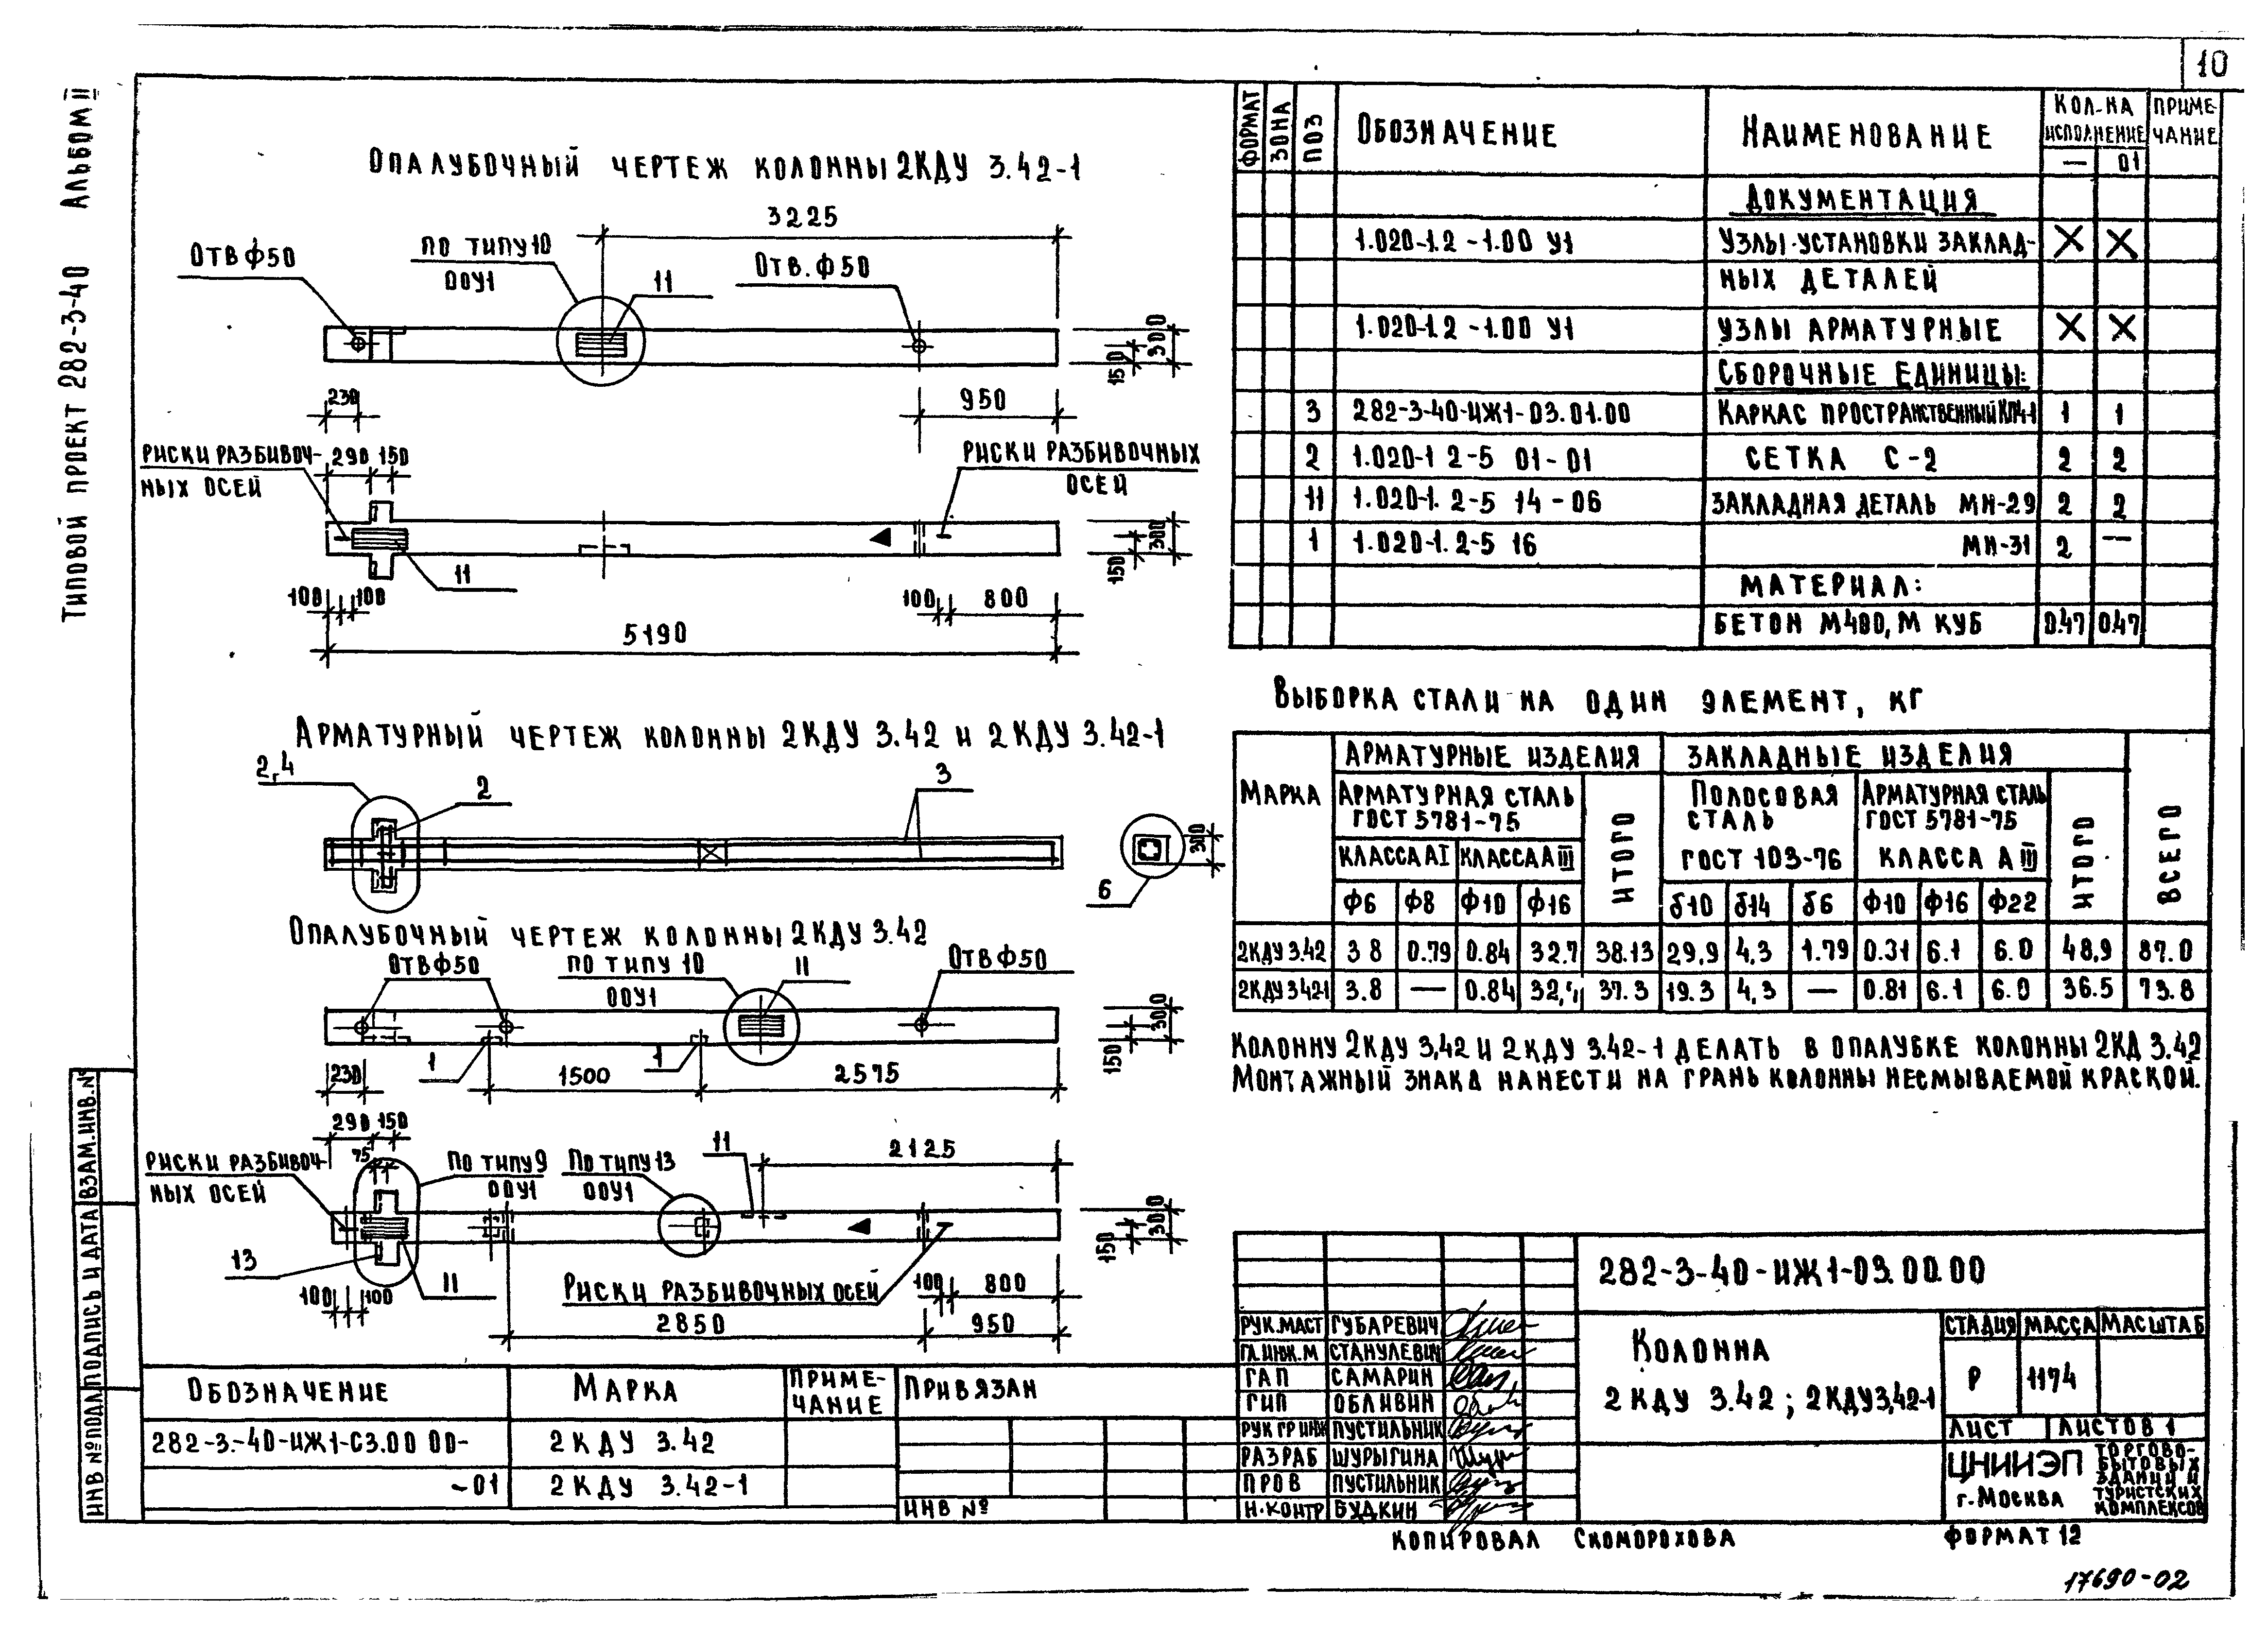 10
Типовой проект 282-3-40 Альбом II
Опалубочный чертеж колонны 2КДУ 3.42-1
3225
Отв ф50
по типу 10
00У1
11
Отв. ф50
150
300
230
950
Риски разбивоч-
ных осей
290 150
Риски разбивочных
осей
11
150
300
100 100
100 800
5190
Арматурный чертеж колонны 2КДУ 3.42 и 2КДУ 3.42-1
2,4
2
3
300
6
Опалубочный чертеж колонны 2КДУ 3.42
Отв ф50
по типу 10
00У1
11
Отв ф50
150
300
230
1
1500
1
2575
290 150
75
Риски разбивоч-
ных осей
По типу 9
00У1
По типу 13
00У1
11
2125
150
300
13
11
100 100
Риски разбивочных осей
100 800
2850
950
Формат
Зона
Поз
Обозначение
Наименование
Кол-на исполнение
Приме-
чание
— 01
Документация
1.020-1.2-1.00 У1 Узлы установки заклад- X X
ных деталей
1.020-1.2-1.00 У1 Узлы арматурные X X
Сборочные единицы:
3 282-3-40-ИЖ1-03.01.00 Каркас пространственный 1 1
2 1.020-1 2-5 01-01 Сетка С-2 2 2
11 1.020-1. 2-5 14-06 Закладная деталь МН-29 2 2
1 1.020-1. 2-5 16 МН-31 2 —
Материал:
Бетон М400, м куб 0.47 0.47
Выборка стали на один элемент, кг
Марка
Арматурные изделия
Закладные изделия
Всего
Арматурная сталь
ГОСТ 5781-75
Итого
Полосовая
сталь
ГОСТ 103-76
Арматурная сталь
ГОСТ 5781-75
Класса А III
Итого
Класса АI Класса А III
Ф6 Ф8 Ф10 Ф16 δ10 δ14 δ6 Ф10 Ф16 Ф22
2КДУ 3.42 3 8 0.79 0.84 32.7 38.13 29,9 4,3 1.79 0.31 6.1 6.0 48,9 87.0
2КДУ 3 42-1 3.8 — 0.84 37.3 19.3 4,3 — 0.81 6.1 6.0 36.5 73.8
Колонну 2КДУ 3,42 и 2КДУ 3.42-1 делать в опалубке колонны 2КД 3.42
Монтажный знак нанести на грань колонны несмываемой краской.
282-3-40-ИЖ1-03.00.00
Рук.маст Губаревич
Гл.инж.м Станулевич
ГАП Самарин
ГИП Обливин
Рук гр инж Пустильник
Разраб Шурыгина
Пров Пустильник
Н.контр Будкин
Колонна
2 КДУ 3.42; 2КДУ3,42-1
Стадия Масса Масштаб
Р 1174
Лист Листов 1
ЦНИИЭП
г. Москва
торгово-
бытовых
зданий и
туристских
комплексов
Обозначение Марка Приме-
чание
282-3.-40-ИЖ1-С3.00 00- 2 КДУ 3.42
-01 2 КДУ 3.42-1
Привязан
Инв №
Инв № подл Подпись и дата Взам.инв.№
Копировал Скоморохова
Формат 12
17690-02